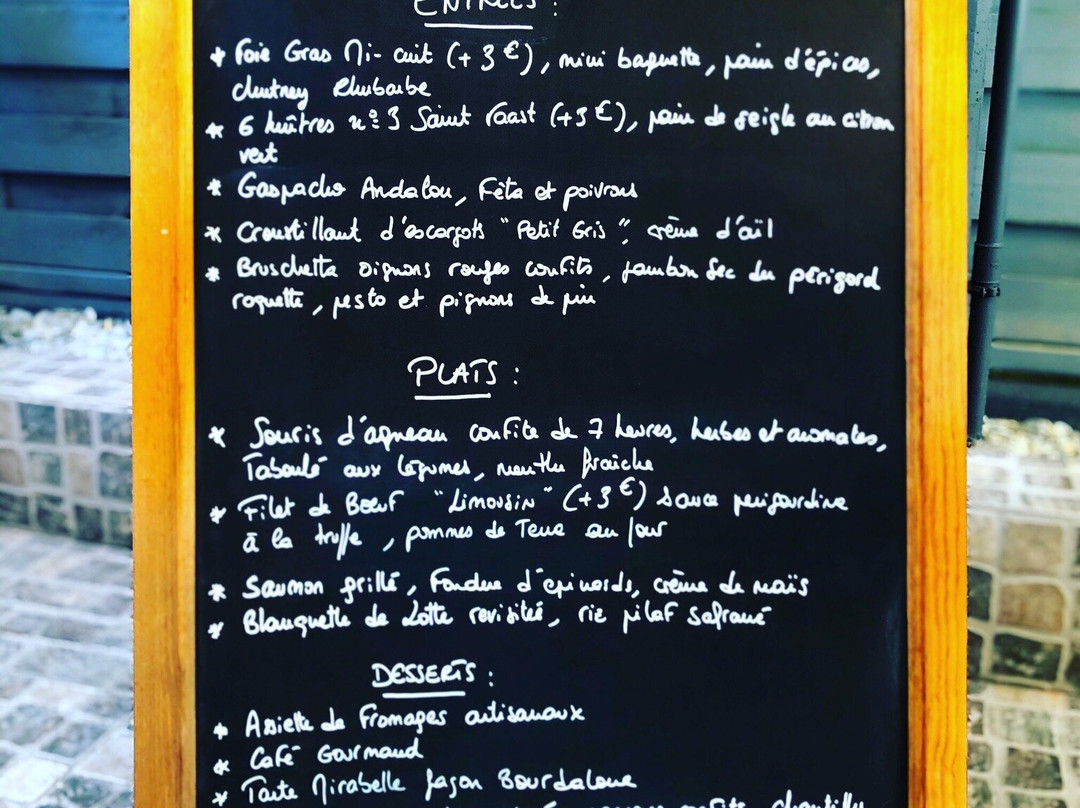 ENTRÉES :
* Foie Gras Mi-cuit (+3€), mini baguette, pain d'épices,
chutney Rhubarbe
* 6 huîtres n°3 Saint Vaast (+3€), pain de seigle au citron
vert
* Gaspacho Andalou, Fêta et poivrons
* Croustillant d'escargots "Petit Gris", crème d'aïl
* Bruschetta oignons rouges confits, jambon sec du périgord
roquette, pesto et pignons de pin
PLATS :
* Souris d'agneau confite de 7 heures, herbes et aromates,
Taboulé aux légumes, menthe fraîche
* Filet de Bœuf "Limousin" (+3€) sauce perigourdine
à la truffe, pommes de Terre au four
* Saumon grillé, Fondue d'épinards, crème de maïs
* Blanquette de Lotte revisitée, riz pilaf safrané
DESSERTS :
* Assiette de Fromages artisanaux
* Café Gourmand
* Tarte Mirabelle façon Bourdaloue
confits, chantilly